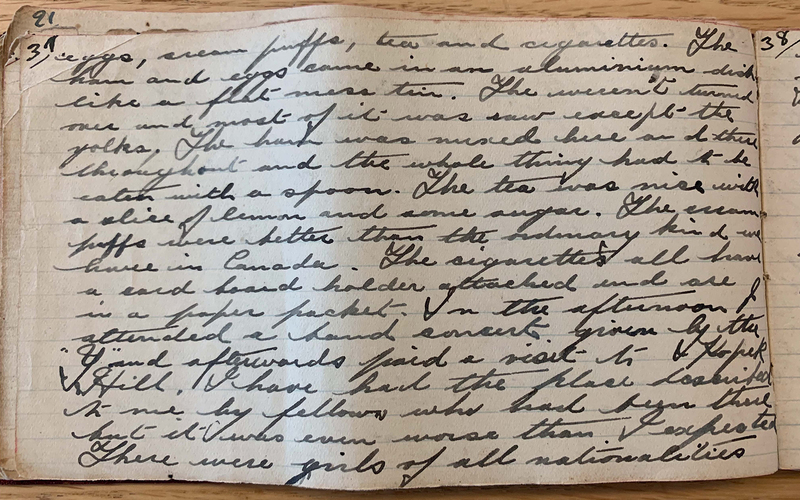 91
37/ eggs, cream puffs, tea and cigarettes. The
ham and eggs came in an aluminium dish
like a flat mess tin. The weren't turned
over and most of it was raw except the
yolks. The ham was mixed here and there
throughout and the whole thing had to be
eaten with a spoon. The tea was nice with
a slice of lemon and some sugar. The cream
puffs were better than the ordinary kind we
have in Canada. The cigarettes all have
a card board holder attached and are
in a paper packet. In the afternoon I
attended a band concert given by the
"Y" and afterwards paid a visit to
Hill. I have had the place described
to me by fellows who had been there
but it was even worse than I expected
There were girls of all nationalities
38/